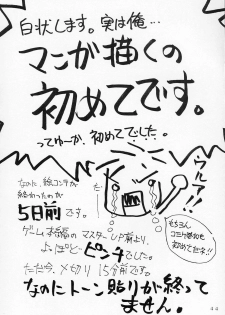 白状します。実は俺…
マンガ描くの
初めてです。
ってゆーか、初めてでした。
ウルァ!!
なのに、絵コンテが
終わったのが
5日前です。
ゲーム本編の マスターUP前より、
よっぽどピンチでした。
ただ今、〆切り 15分前です。
なのにトーン貼りが終って
ません。
もちろん
コミケ参加も
初めてだネ!!